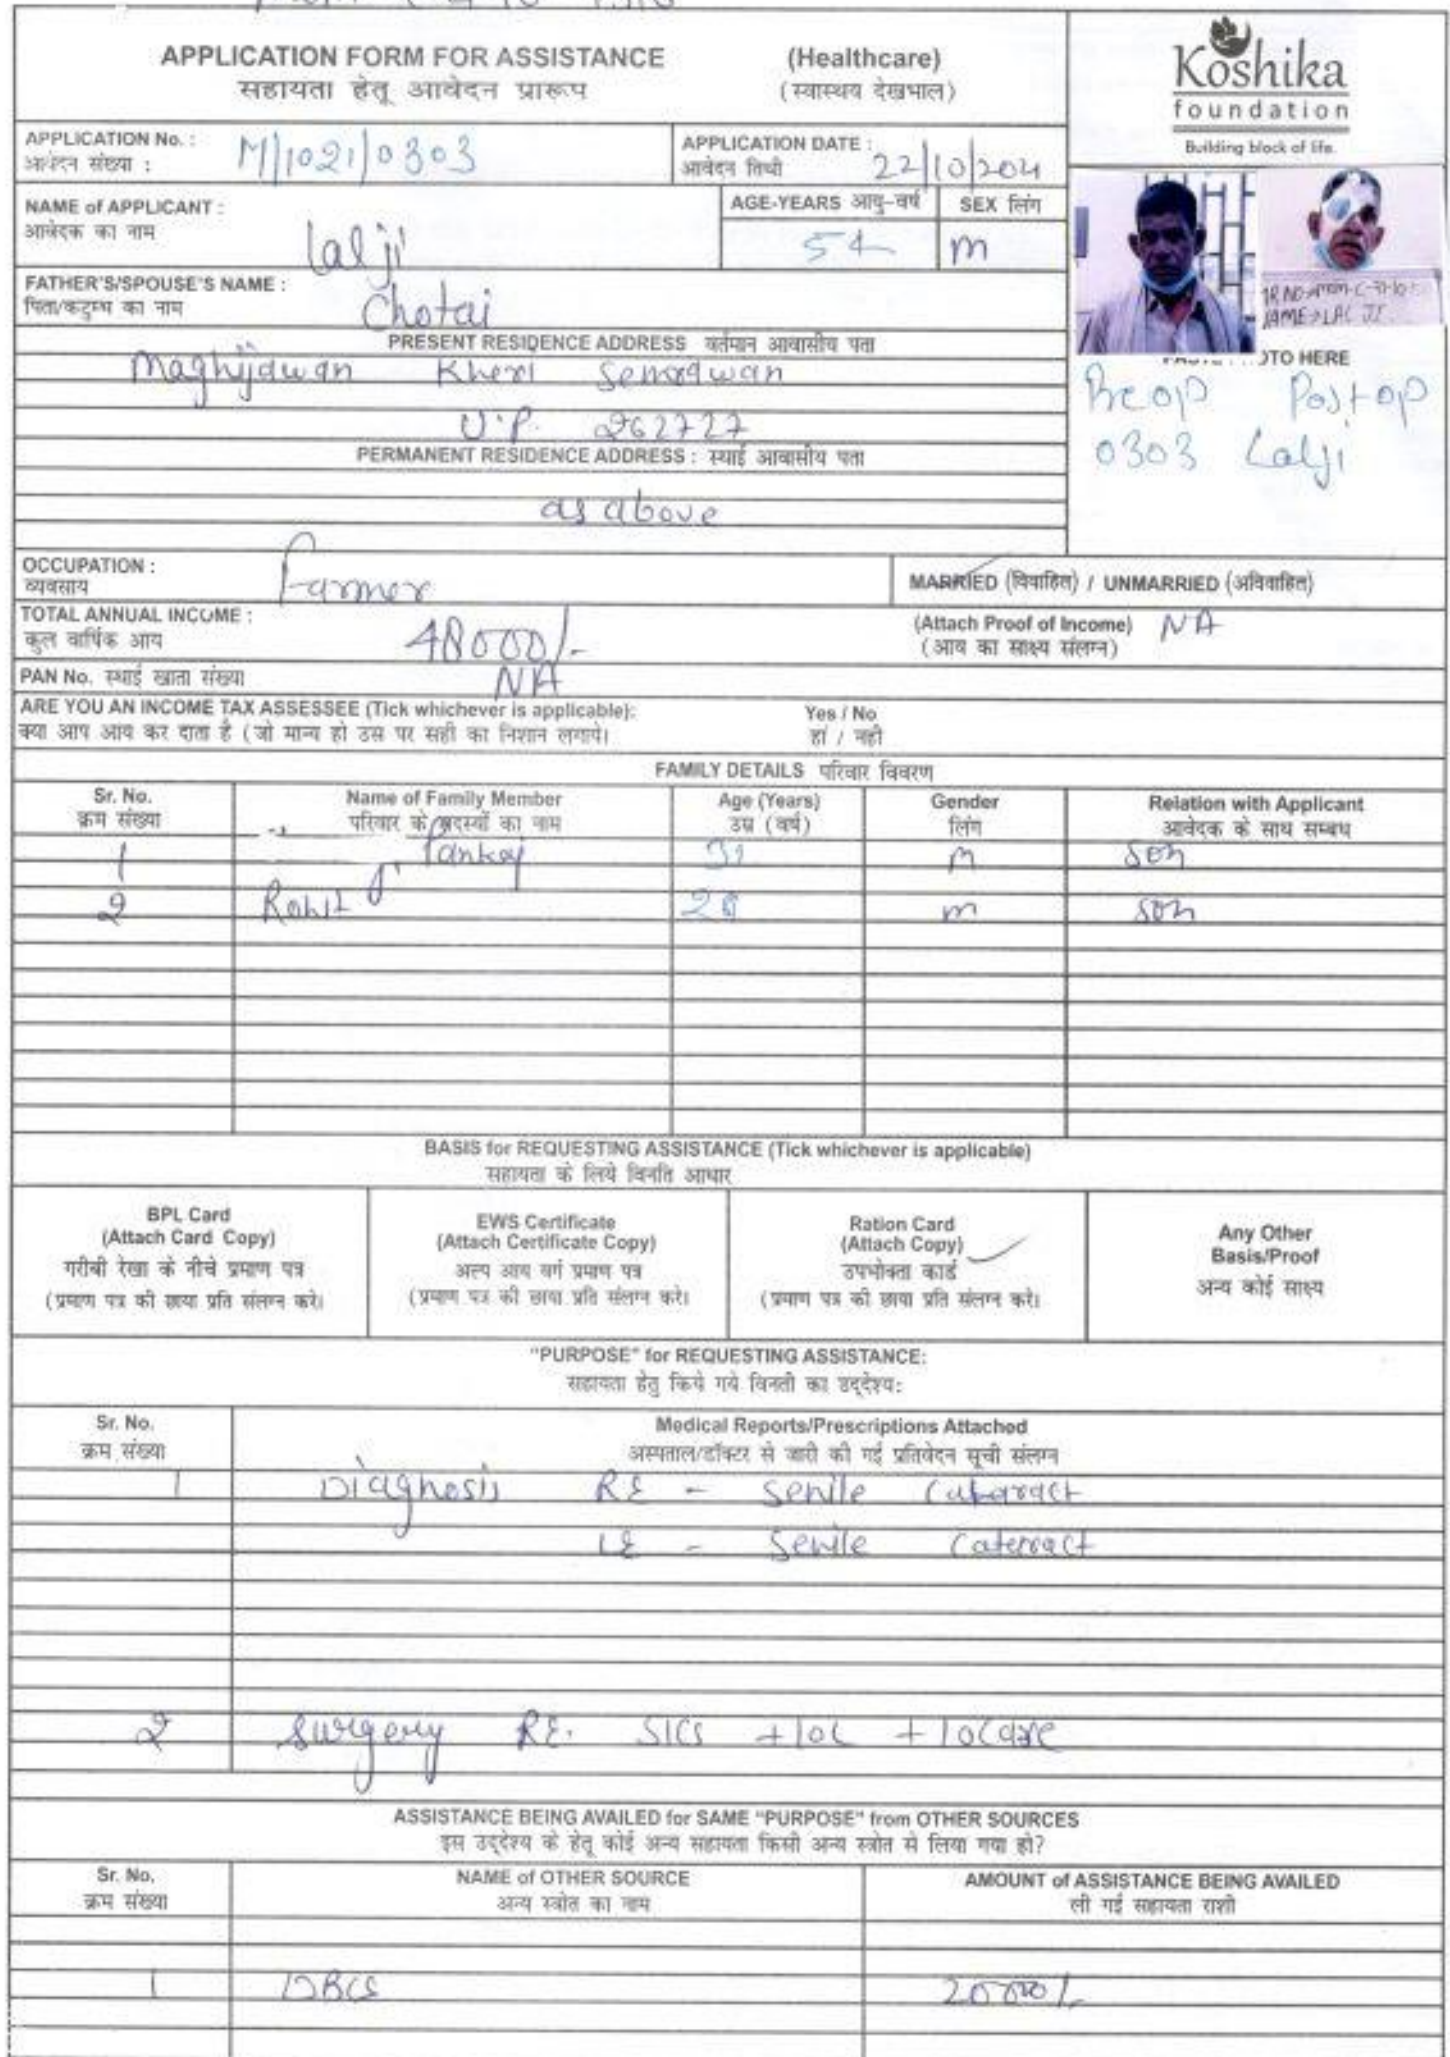 APPLICATION FORM FOR ASSISTANCE (Healthcare)
सहायता हेतू आवेदन प्रारूप (स्वास्थय देखभाल)
Koshika
foundation
Building block of life.
APPLICATION No. : M/1021/0303
आवेदन संख्या :
APPLICATION DATE : 22/10/2021
आवेदन तिथी
NAME of APPLICANT : Lalji
आवेदक का नाम
AGE-YEARS आयु-वर्ष SEX लिंग
54 m
FATHER'S/SPOUSE'S NAME : Chotai
पिता/कटुम्ब का नाम
NAME→LAL JI
PRESENT RESIDENCE ADDRESS वर्तमान आवासीय पता
OTO HERE
Kheri
U.P. 262727
Preop Postop
0303 Lalji
PERMANENT RESIDENCE ADDRESS : स्थाई आवासीय पता
as above
OCCUPATION : Farmer
व्यवसाय
MARRIED (विवाहित) / UNMARRIED (अविवाहित)
TOTAL ANNUAL INCOME : 48000/-
कुल वार्षिक आय
(Attach Proof of Income) NA
(आय का साक्ष्य संलग्न)
PAN No. स्थाई खाता संख्या NA
ARE YOU AN INCOME TAX ASSESSEE (Tick whichever is applicable): Yes / No
क्या आप आय कर दाता है (जो मान्य हो उस पर सही का निशान लगाये। हां / नही
FAMILY DETAILS परिवार विवरण
Sr. No. Name of Family Member Age (Years) Gender Relation with Applicant
क्रम संख्या परिवार के सदस्यों का नाम उम्र (वर्ष) लिंग आवेदक के साथ सम्बध
1 Pankaj m son
2 Rohit m son
BASIS for REQUESTING ASSISTANCE (Tick whichever is applicable)
सहायता के लिये विनति आधार
BPL Card
(Attach Card Copy)
गरीबी रेखा के नीचे प्रमाण पत्र
(प्रमाण पत्र की छाया प्रति संलग्न करे।
EWS Certificate
(Attach Certificate Copy)
अल्प आय वर्ग प्रमाण पत्र
(प्रमाण पत्र की छाया प्रति संलग्न करे।
Ration Card
(Attach Copy)
उपभोक्ता कार्ड
(प्रमाण पत्र की छाया प्रति संलग्न करे।
Any Other
Basis/Proof
अन्य कोई साक्ष्य
"PURPOSE" for REQUESTING ASSISTANCE:
सहायता हेतु किये गये विनती का उद्देश्य:
Sr. No. Medical Reports/Prescriptions Attached
क्रम संख्या अस्पताल/डॉक्टर से जारी की गई प्रतिवेदन सूची संलग्न
1 Diagnosis RE - senile Cataract
LE - Senile Cateract
2 Surgery RE. SICS + IOL +
ASSISTANCE BEING AVAILED for SAME "PURPOSE" from OTHER SOURCES
इस उद्देश्य के हेतू कोई अन्य सहायता किसी अन्य स्त्रोत से लिया गया हो?
Sr. No. NAME of OTHER SOURCE AMOUNT of ASSISTANCE BEING AVAILED
क्रम संख्या अन्य स्त्रोत का नाम ली गई सहायता राशी
1 DBCS